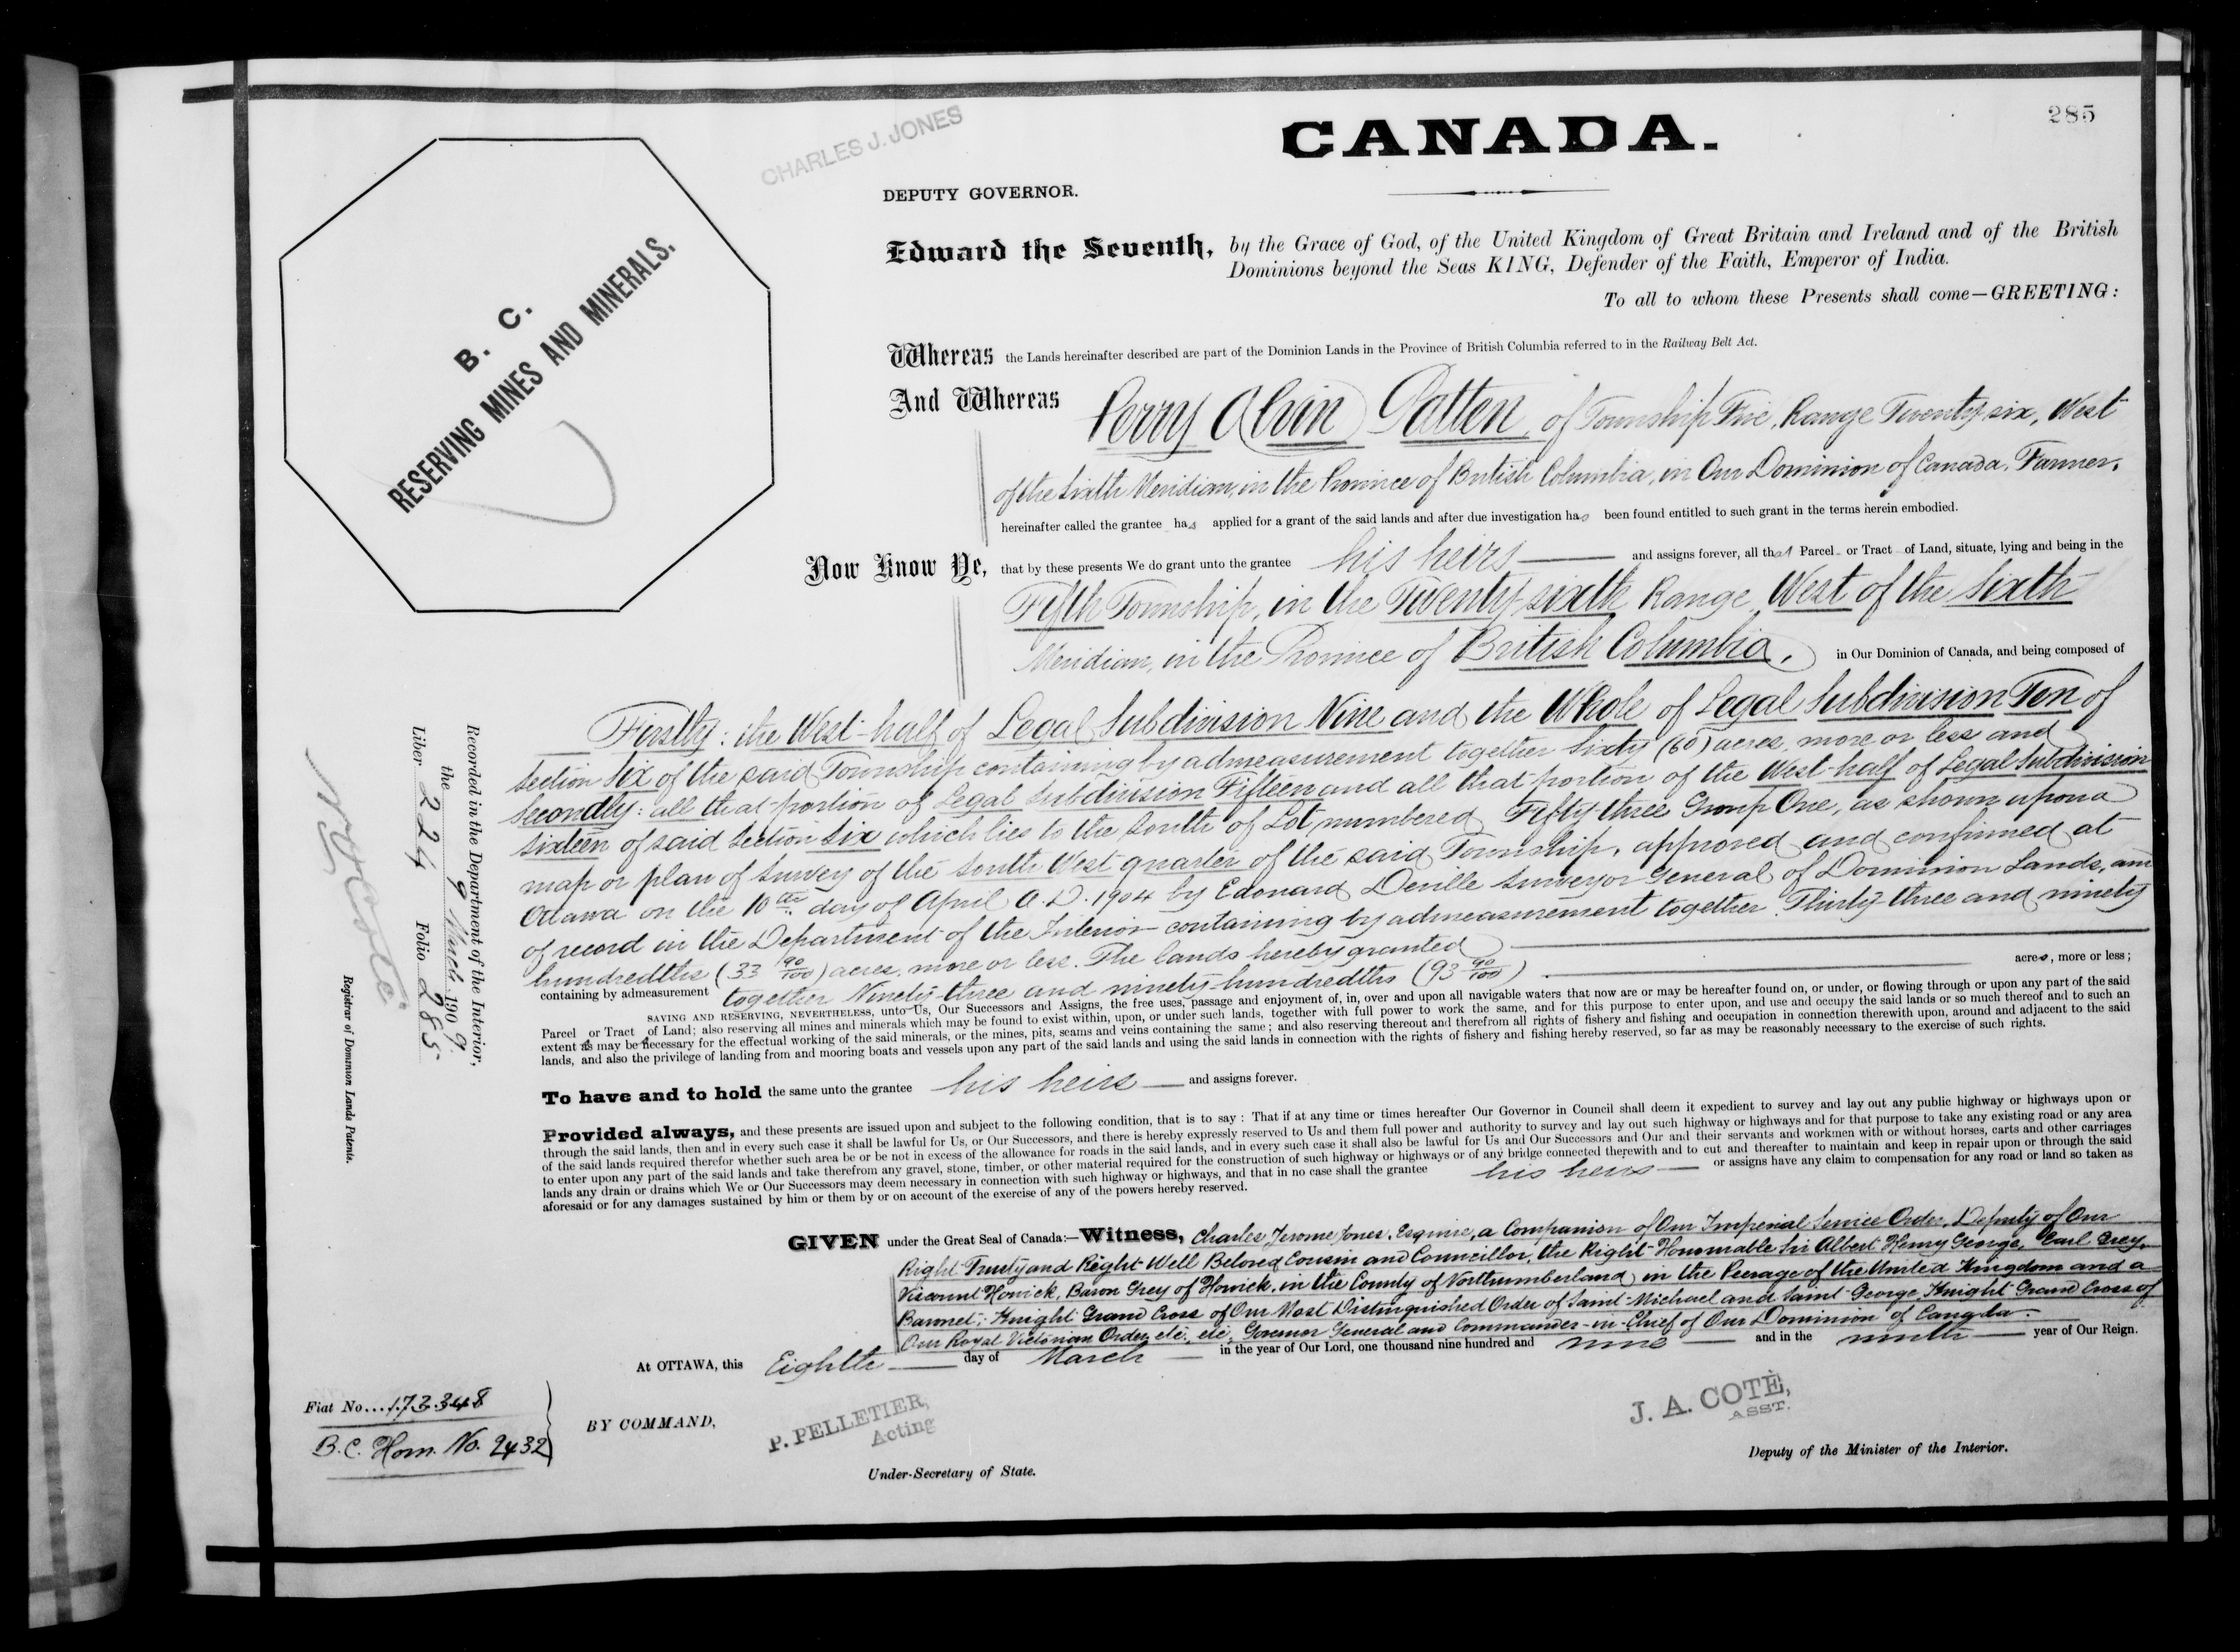 285
CHARLES J. JONES
CANADA.
DEPUTY GOVERNOR.
B. C.
RESERVING MINES AND MINERALS.
Edward the Seventh, by the Grace of God, of the United Kingdom of Great Britain and Ireland and of the British
Dominions beyond the Seas KING, Defender of the Faith, Emperor of India.
To all to whom these Presents shall come—GREETING:
Whereas the Lands hereinafter described are part of the Dominion Lands in the Province of British Columbia referred to in the Railway Belt Act.
And Whereas Perry Alvin Patten, of Township Five, Range Twenty six, West
of the Sixth Meridian, in the Province of British Columbia, in Our Dominion of Canada, Farmer,
hereinafter called the grantee has applied for a grant of the said lands and after due investigation has been found entitled to such grant in the terms herein embodied.
Now Know Ye, that by these presents We do grant unto the grantee his heirs and assigns forever, all that Parcel or Tract of Land, situate, lying and being in the
Fifth Township, in the Twenty-sixth Range, West of the Sixth
Meridian, in the Province of British Columbia, in Our Dominion of Canada, and being composed of
Firstly: the West-half of Legal Subdivision Nine and the Whole of Legal Subdivision Ten of
Section Six of the said Township containing by admeasurement together Sixty (60) acres, more or less and
Secondly: all that portion of Legal Subdivision Fifteen and all that portion of the West-half of Legal Subdivision
Sixteen of said Section Six which lies to the South of Lot numbered Fifty three Group One, as shown upon a
map or plan of Survey of the South West quarter of the said Township, approved and confirmed at
Ottawa on the 10th day of April A.D. 1904 by Edouard Deville Surveyor General of Dominion Lands, and
of record in the Department of the Interior containing by admeasurement together Thirty-three and ninety
hundredths (33 90/100) acres, more or less. The lands hereby granted
containing by admeasurement together Ninety-three and ninety-hundredths (93 90/100) acres, more or less;
SAVING AND RESERVING, NEVERTHELESS, unto Us, Our Successors and Assigns, the free uses, passage and enjoyment of, in, over and upon all navigable waters that now are or may be hereafter found on, or under, or flowing through or upon any part of the said
Parcel or Tract of Land; also reserving all mines and minerals which may be found to exist within, upon, or under such lands, together with full power to work the same, and for this purpose to enter upon, and use and occupy the said lands or so much thereof and to such an
extent as may be necessary for the effectual working of the said minerals, or the mines, pits, seams and veins containing the same; and also reserving thereout and therefrom all rights of fishery and fishing and occupation in connection therewith upon, around and adjacent to the said
lands, and also the privilege of landing from and mooring boats and vessels upon any part of the said lands and using the said lands in connection with the rights of fishery and fishing hereby reserved, so far as may be reasonably necessary to the exercise of such rights.
To have and to hold the same unto the grantee his heirs and assigns forever.
Provided always, and these presents are issued upon and subject to the following condition, that is to say: That if at any time or times hereafter Our Governor in Council shall deem it expedient to survey and lay out any public highway or highways upon or
through the said lands, then and in every such case it shall be lawful for Us, or Our Successors, and there is hereby expressly reserved to Us and them full power and authority to survey and lay out such highway or highways and for that purpose to take any existing road or any area
of the said lands required therefor whether such area be or be not in excess of the allowance for roads in the said lands, and in every such case it shall also be lawful for Us and Our Successors and Our and their servants and workmen with or without horses, carts and other carriages
to enter upon any part of the said lands and take therefrom any gravel, stone, timber, or other material required for the construction of such highway or highways or of any bridge connected therewith and to cut and thereafter to maintain and keep in repair upon or through the said
lands any drain or drains which We or Our Successors may deem necessary in connection with such highway or highways, and that in no case shall the grantee his heirs or assigns have any claim to compensation for any road or land so taken as
aforesaid or for any damages sustained by him or them by or on account of the exercise of any of the powers hereby reserved.
GIVEN under the Great Seal of Canada:—Witness, Charles Jerome Jones, Esquire, a Companion of Our Imperial Service Order, Deputy of Our
Right Trusty and Right Well Beloved Cousin and Councillor, the Right Honourable Sir Albert Henry George, Earl Grey,
Viscount Howick, Baron Grey of Howick, in the County of Northumberland, in the Peerage of the United Kingdom and a
Baronet; Knight Grand Cross of Our Most Distinguished Order of Saint Michael and Saint George, Knight Grand Cross of
Our Royal Victorian Order, etc., etc., Governor General and Commander-in-Chief of Our Dominion of Canada.
At OTTAWA, this Eighth day of March in the year of Our Lord, one thousand nine hundred and nine and in the ninth year of Our Reign.
Recorded in the Department of the Interior,
the 9 March 1909
Liber 224 Folio 285
N. O. Coté
Registrar of Dominion Lands Patents.
Fiat No...173348
B.C. Hom. No. 2432
BY COMMAND,
P. PELLETIER,
Acting
Under-Secretary of State.
J. A. COTÉ,
ASST.
Deputy of the Minister of the Interior.